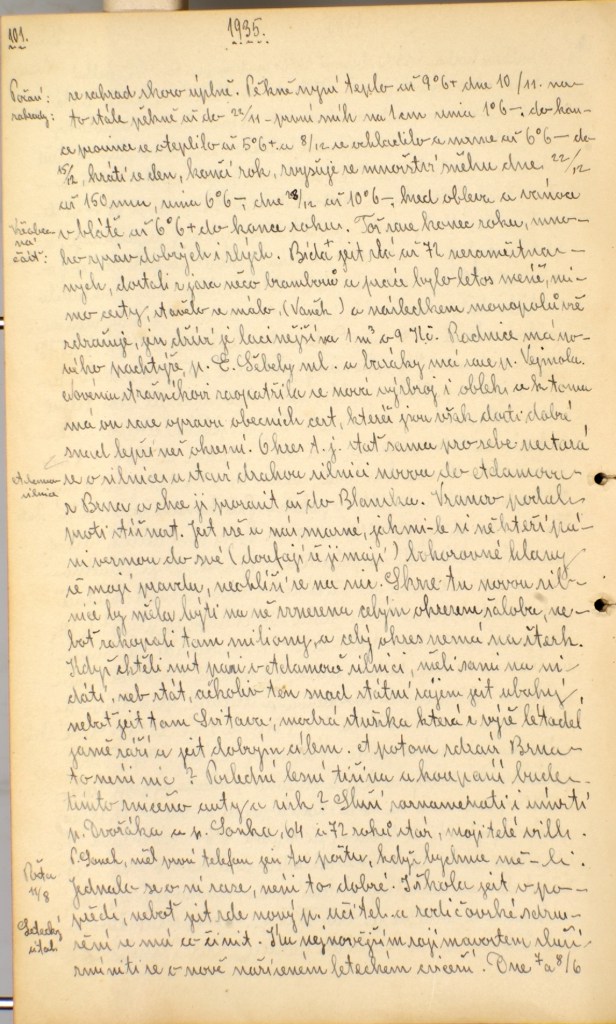 101.
1935.
Počasí:
zahrady:
se zahrad skoro úplně. Pěkné nyní teplo až 9°6+ dne 10/11. na-
to stále pěkně až do 22/11 - první sníh na 1 cm zima 1°6-, do kon-
a prosince se oteplilo až 5°6+ a 8/12 se ochladilo a mrzne až 6°6- do
15/12, krátí se den, končí rok, zvyšuje se množství sněhu dne 22/12
až 150 mm, zima 6°6-, dne 23/12 až 10°6-, hned obleva a vánoce
v blátě až 6°6+ do konce roku. Toť zase konec roku, mno-
Všeobec-
ná
část:
ho zpráv dobrých i zlých. Bída jest zlá až 72 nezaměstna-
ných, dostali z jara něco brambor a práce bylo letos méně, mi-
mo cesty, stavělo se málo, (Vaněk) a následkem monopolů vše
zdražuje, jen dříví je lacinější na 1 m³ o 9 Kč. Radnice má no-
vého pachtýře, p. E. Šebely ml. a bezáky má zase p. Vejmola.
Novému strážníkovi zaopatřila se nová výzbroj i oblek a k tomu
má on zase opravu obecních cest, kteréž jsou však dosti dobré
snad lepší než okresní. Okres t. j. stát sama pro sebe nestará
Adamov.
silnice
se o silnice a staví drahou silnici novou do Adamova
z Brna a chce ji prorazit až do Blanska. Vranov podal
proti stížnost. Jest vše u nás marné, jakmi-le si někteří pá-
ni vezmou do své (doufají že ji mají) bohorovné hlavy
že mají pravdu, neohlíží se na nic. Skrze tu novou sil-
nici by měla býti na ně vznesena celým okresem žaloba, ne-
boť zakopali tam miliony, a celý okres nemá na štěrk.
Když chtěli mít páni v Adamově silnici, měli sami na ni
dáti, neb stát, ačkoliv ten snad státní zájem jest ubohý,
neboť jest tam Svitava, modrá stužka která z výše letadel
jasně září a jest dobrým cílem. A potom zdraví Brna
to není nic? Poslední lesní tišina a koupání bude
tímto zničeno auty a nich? Sluší zaznamenati i úmrtí
p. Dvořáka a p. Sonka, 64 a 72 roků stár, majitelé vill.
Pošta
11/8
P. Sonek, měl první telefon jen tu poštu, kdyby bychme mě-li.
Jednalo se o ni zase, není to dobré. I škola jest v po-
předí, neboť jest zde nový p. učitel a rodičovské sdru-
Letecký
útok
žení se má co činit. Ku nejnovějším zajímavostem sluší
zmíniti se o nově nařízeném leteckém cvičení. Dne 7 a 8/6